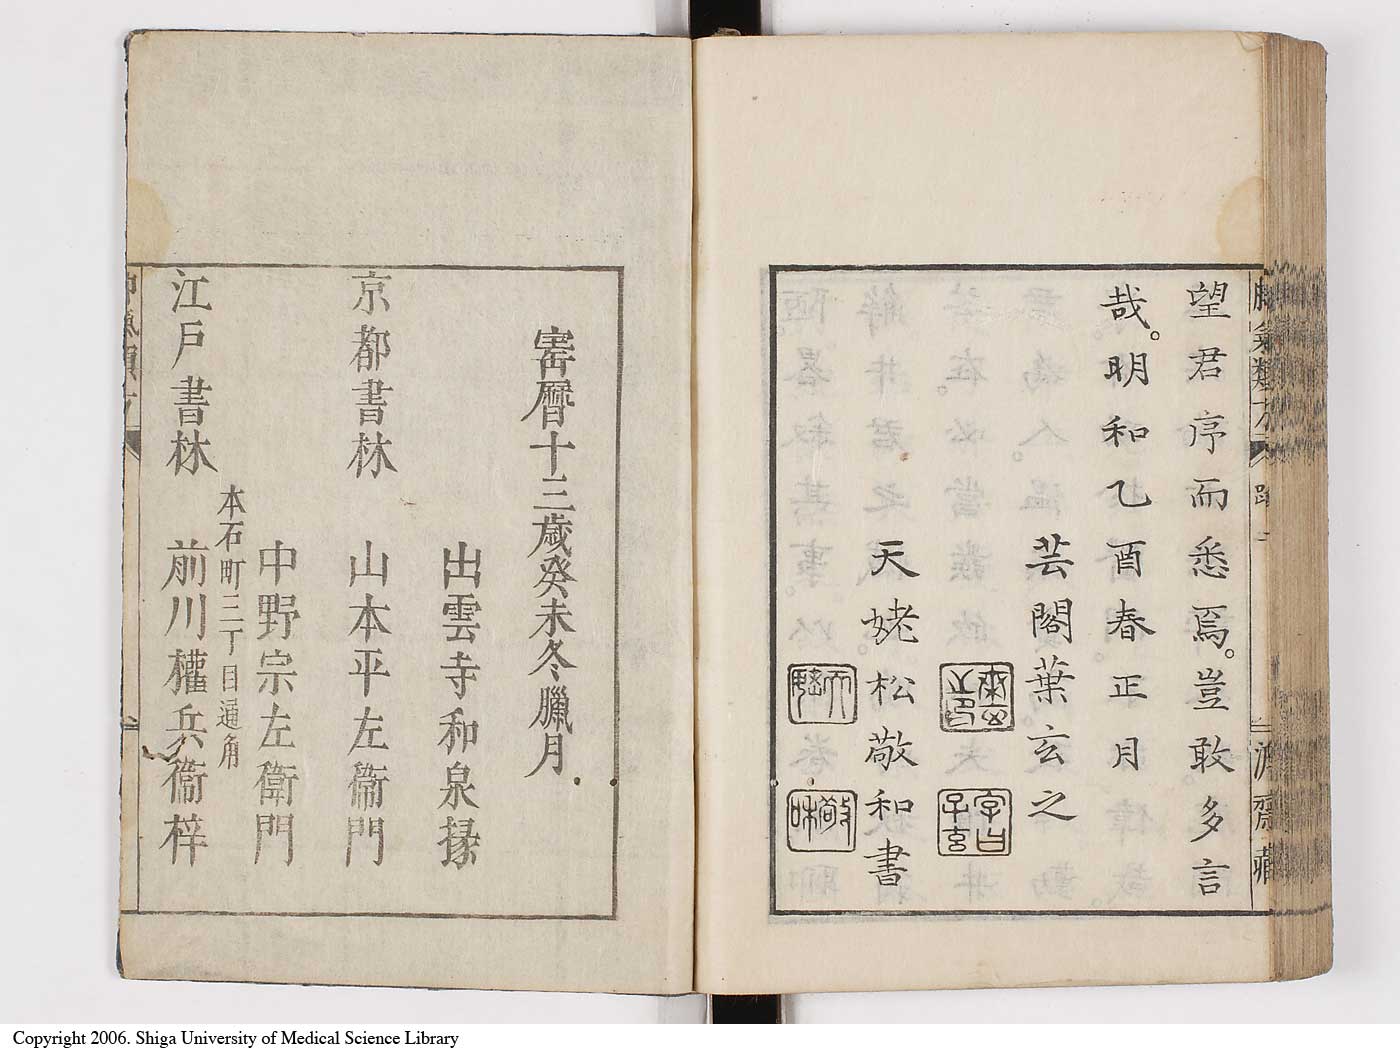 望君序而悉焉。豈敢多言
哉。明和乙酉春正月
芸閣葉玄之
天姥松敬和書
字曰子玄
敬和
寚曆十三歲癸未冬臘月
出雲寺和泉掾
京都書林 山本平左衞門
中野宗左衞門
本石町三丁目通角
江戸書林 前川權兵衞梓
Copyright 2006. Shiga University of Medical Science Library